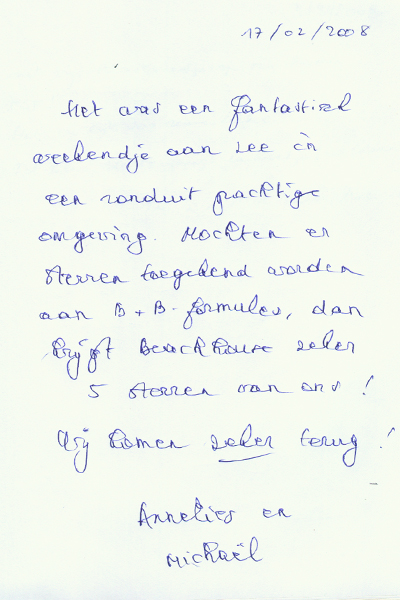 17/02/2008
Het was een fantastisch
weekendje aan zee in
een ronduit prachtige
omgeving. Mochten er
sterren toegekend worden
aan B+B-formules, dan
krijgt Beach House zeker
5 sterren van ons!
Wij komen zeker terug!
Annelies en
Michaël